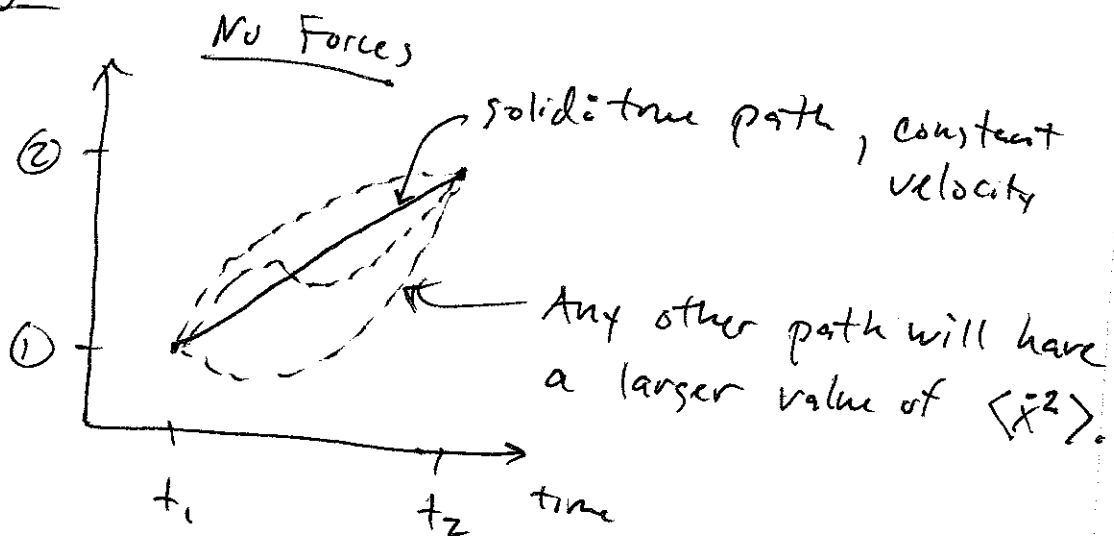 No Forces
②
solid: true path, constant
velocity
①
Any other path will have
a larger value of ⟨ẋ²⟩.
t₁
t₂
time